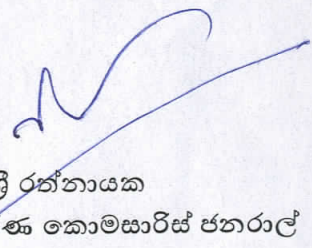 ශ්‍රී රත්නායක
ණ කොමසාරිස් ජනරාල්